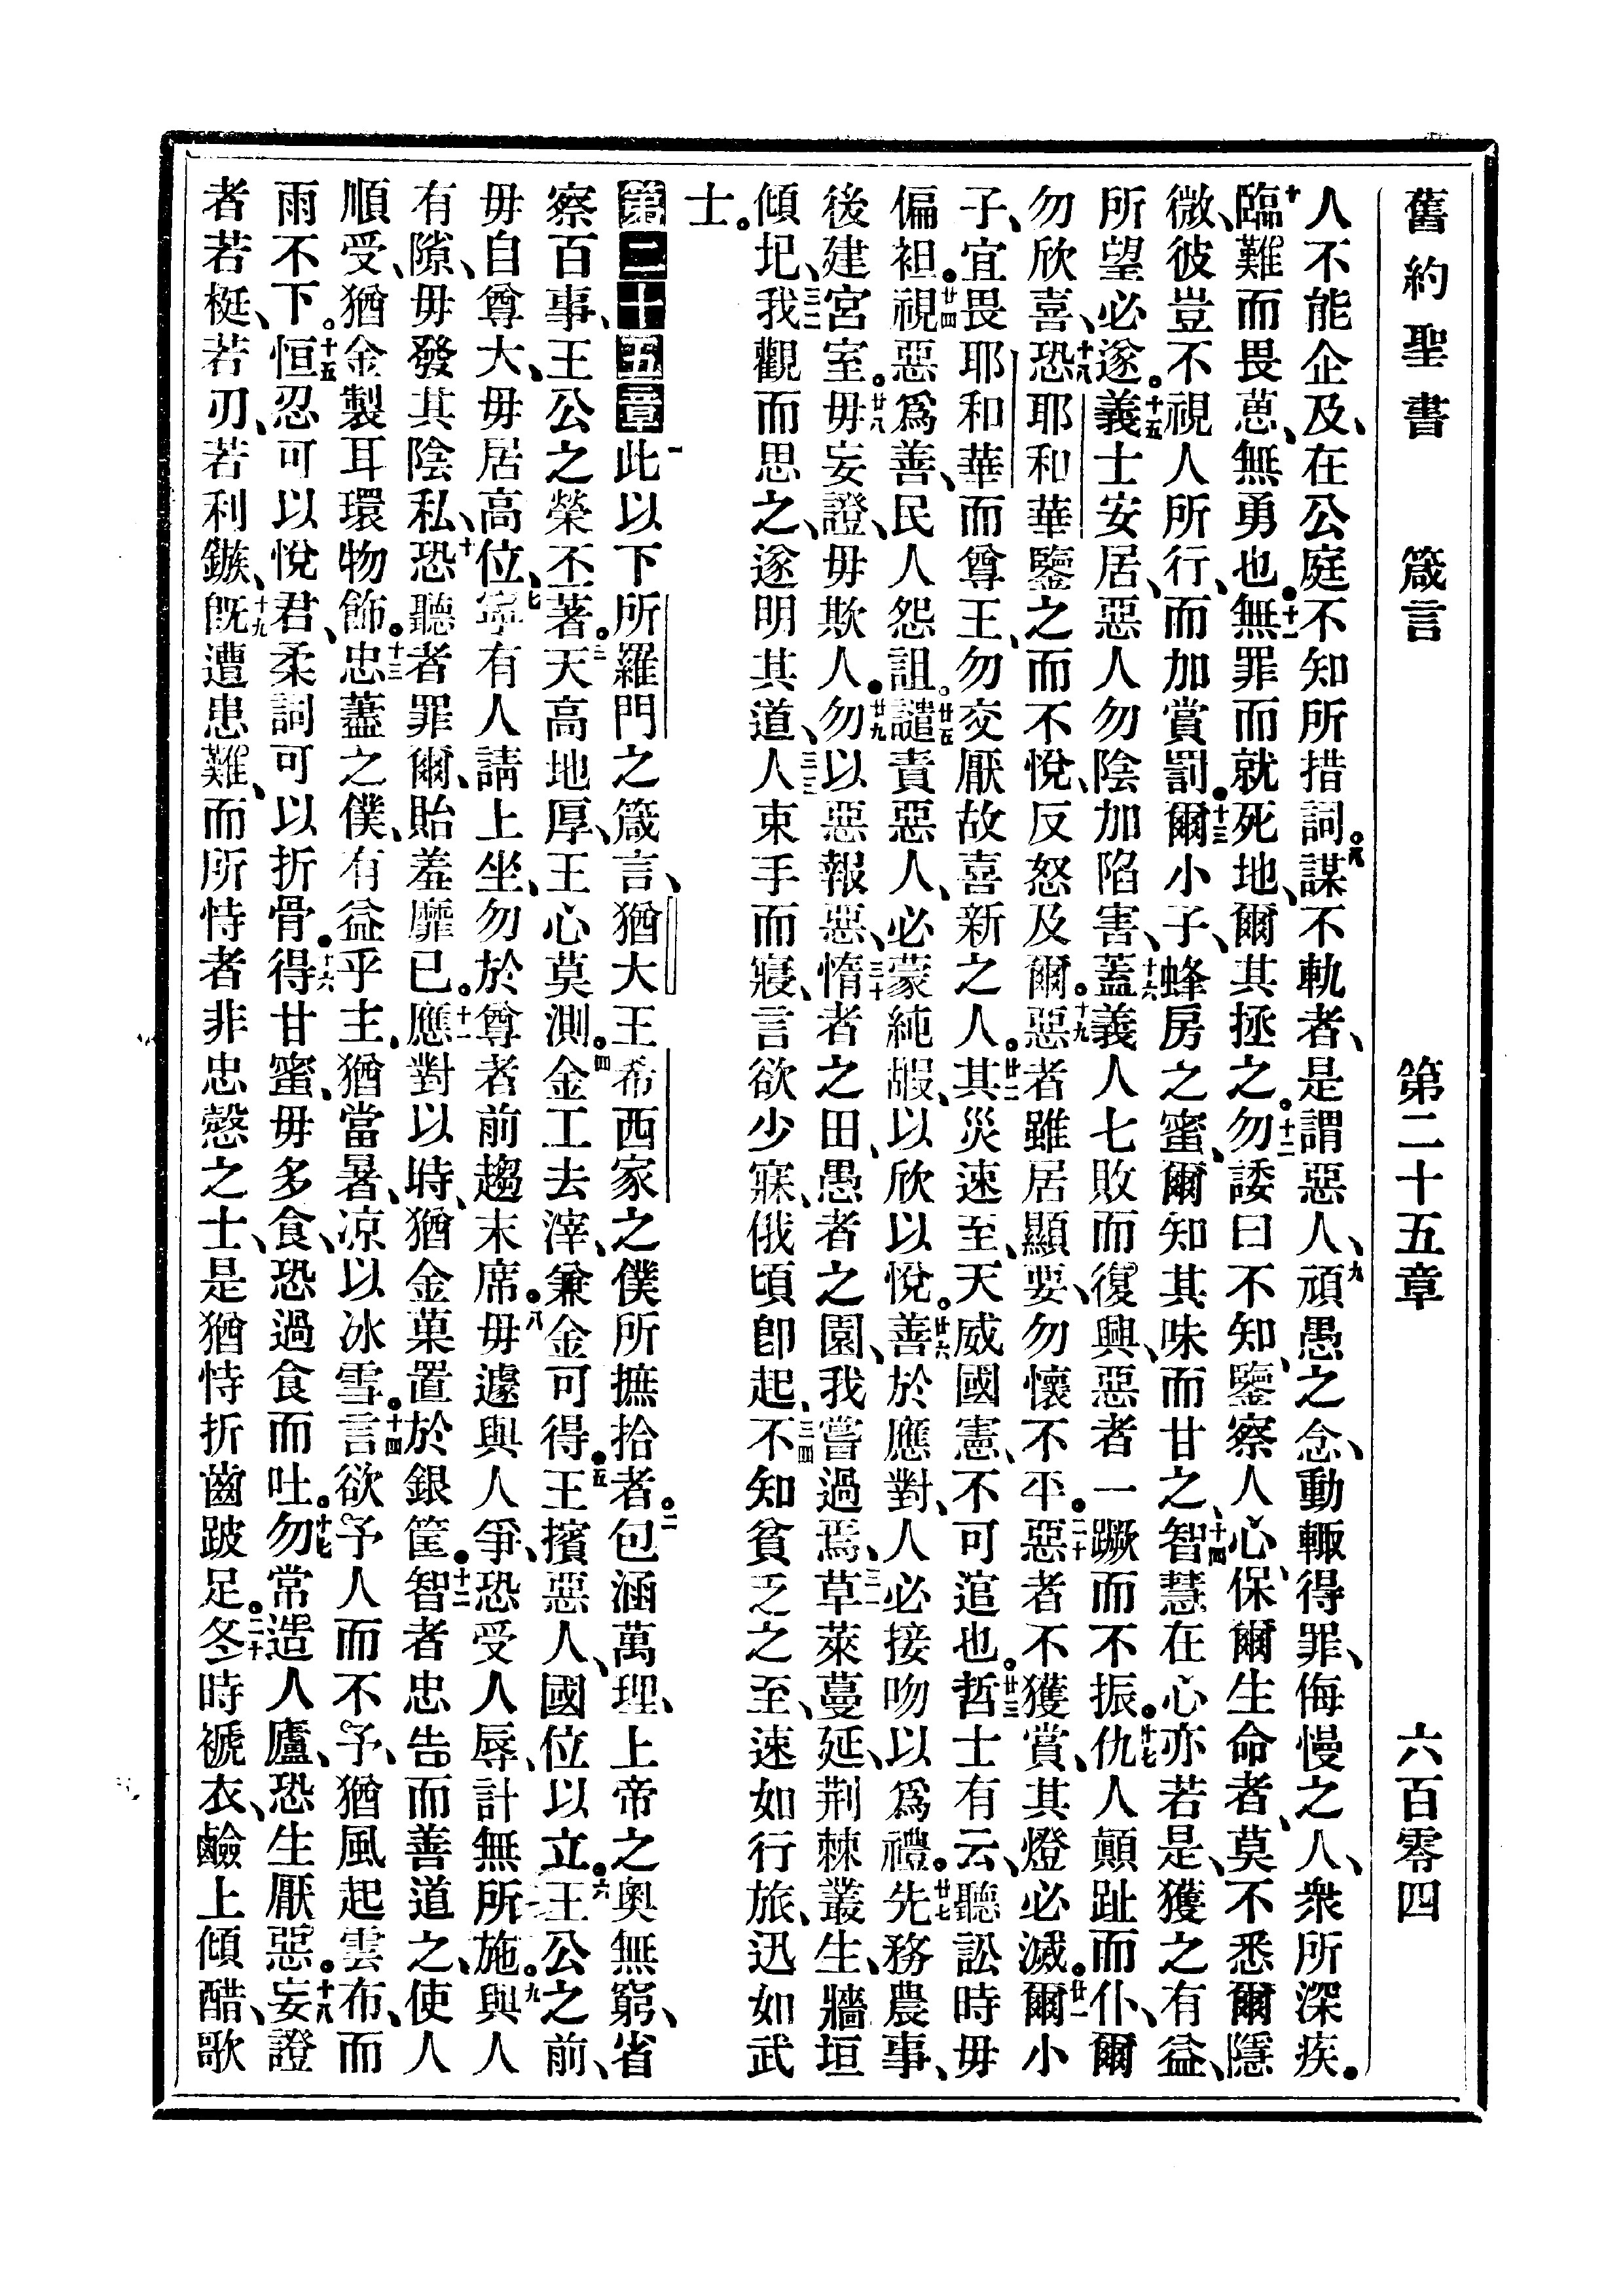 舊約聖書 箴言 第二十五章 六百零四
人不能企及、在公庭不知所措詞。八謀不軌者、是謂惡人、九頑愚之念、動輒得罪、侮慢之人、衆所深疾。
十臨難而畏葸、無勇也。十一無罪而就死地、爾其拯之。十二勿諉曰不知、鑒察人心、保爾生命者、莫不悉爾隱
微、彼豈不視人所行、而加賞罰。十三爾小子、蜂房之蜜、爾知其味而甘之、十四智慧在心亦若是、獲之有益、
所望必遂。十五義士安居、惡人勿陰加陷害、十六蓋義人七敗而復興、惡者一蹶而不振。十七仇人顚趾而仆、爾
勿欣喜、十八恐耶和華鑒之而不悅、反怒及爾。十九惡者雖居顯要、勿懷不平。二十惡者不獲賞、其燈必滅。廿一爾小
子、宜畏耶和華而尊王、勿交厭故喜新之人。廿二其災速至、天威國憲、不可逭也。廿三哲士有云、聽訟時毋
偏袒。廿四視惡爲善、民人怨詛。廿五譴責惡人、必蒙純嘏、以欣以悅。廿六善於應對、人必接吻以爲禮。廿七先務農事、
後建宮室。廿八毋妄證、毋欺人。廿九勿以惡報惡、三十惰者之田、愚者之園、我嘗過焉、三一草萊蔓延、荆棘叢生、牆垣
傾圮、三二我觀而思之、遂明其道、三三人束手而寢、言欲少寐、俄頃卽起、三四不知貧乏之至、速如行旅、迅如武
士。
第二十五章一此以下所羅門之箴言、猶大王希西家之僕所撫拾者。二包涵萬理、上帝之奧無窮、省
察百事、王公之榮丕著。三天高地厚、王心莫測。四金工去滓、兼金可得。五王擯惡人、國位以立。六王公之前、
毋自尊大、毋居高位、七寧有人請上坐、勿於尊者前趨末席。八毋遽與人爭、恐受人辱、計無所施。九與人
有隙、毋發其陰私、十恐聽者罪爾、貽羞靡已。十一應對以時、猶金菓置於銀筐。十二智者忠告而善道之、使人
順受、猶金製耳環物飾。十三忠藎之僕、有益乎主、猶當暑、凉以冰雪。十四言欲予人而不予、猶風起雲布、而
雨不下。十五恒忍可以悅君、柔詞可以折骨。十六得甘蜜、毋多食、恐過食而吐。十七勿常造人廬、恐生厭惡。十八妄證
者若梃、若刃、若利鏃、十九旣遭患難、而所恃者非忠慤之士、是猶恃折齒跛足。二十冬時褫衣、鹼上傾醋、歌